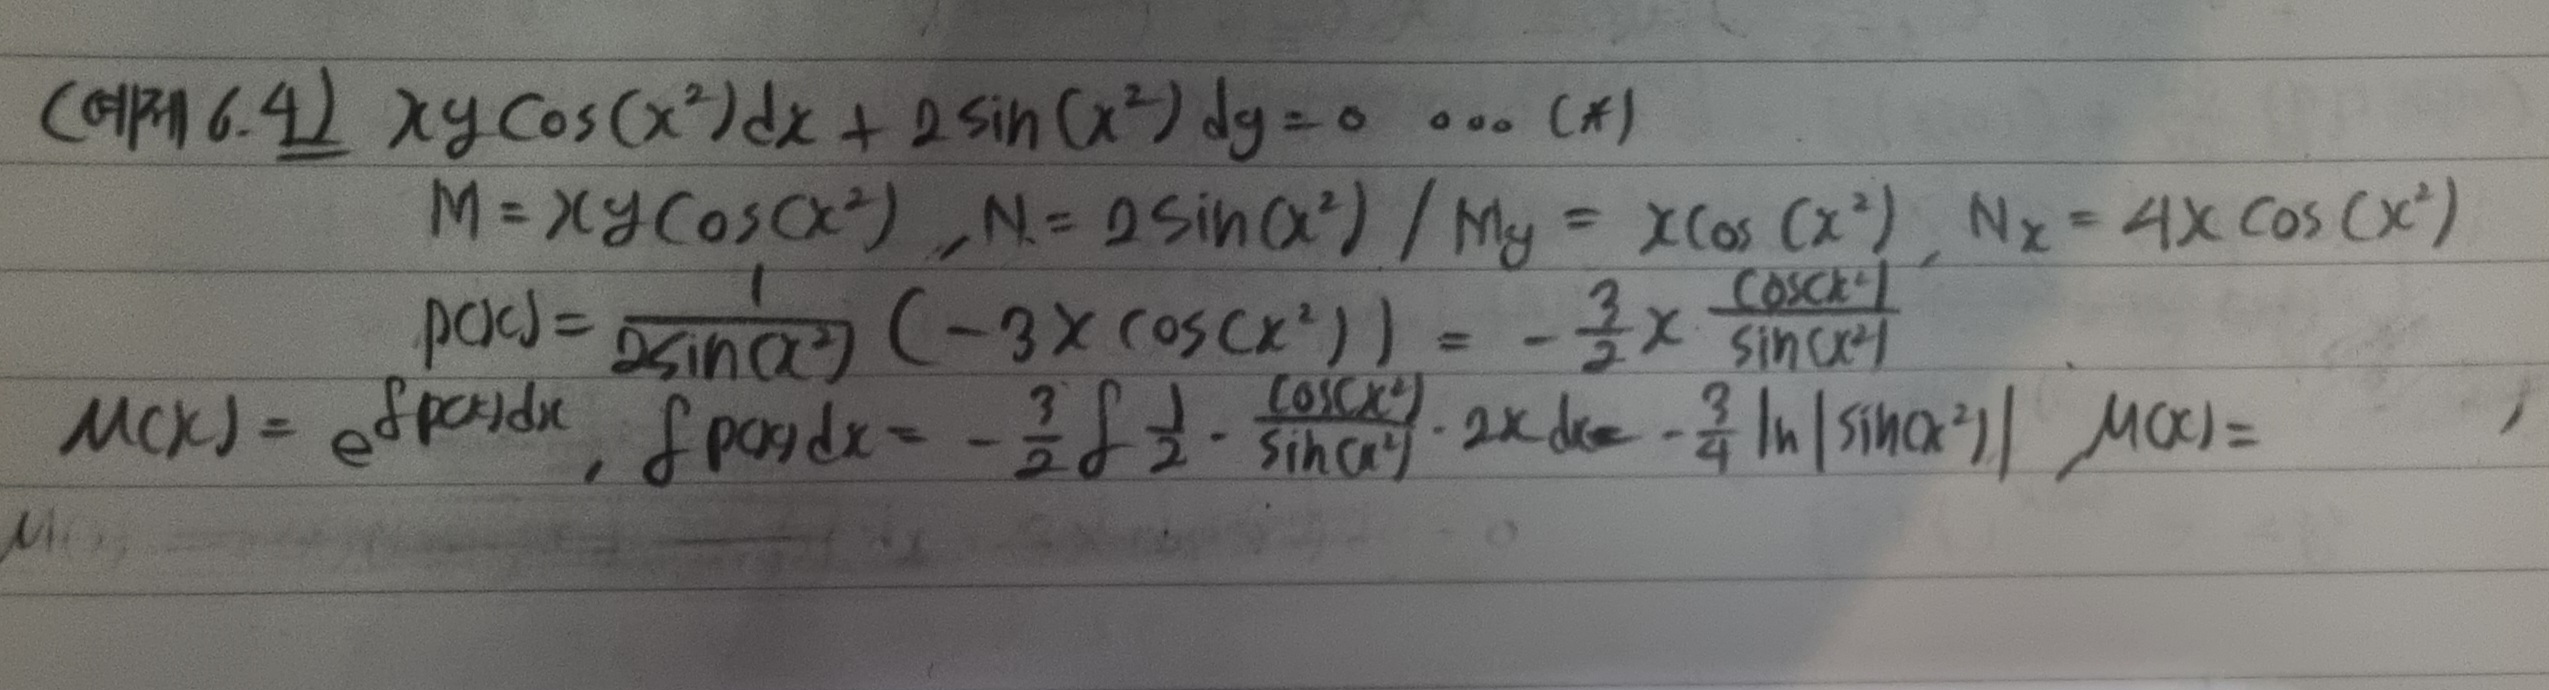 (예제 6.4) xy cos(x²)dx + 2 sin(x²) dy = 0 ... (*)
M = xy cos(x²), N = 2 sin(x²) / My = x cos(x²), Nx = 4x cos(x²)
p(x) = 1/(2sin(x²)) (-3x cos(x²)) = -3/2 x · cos(x²)/sin(x²)
μ(x) = e^∫p(x)dx, ∫p(x)dx = -3/2 ∫ 1/2 · cos(x²)/sin(x²) · 2x dx = -3/4 ln|sin(x²)| μ(x) =